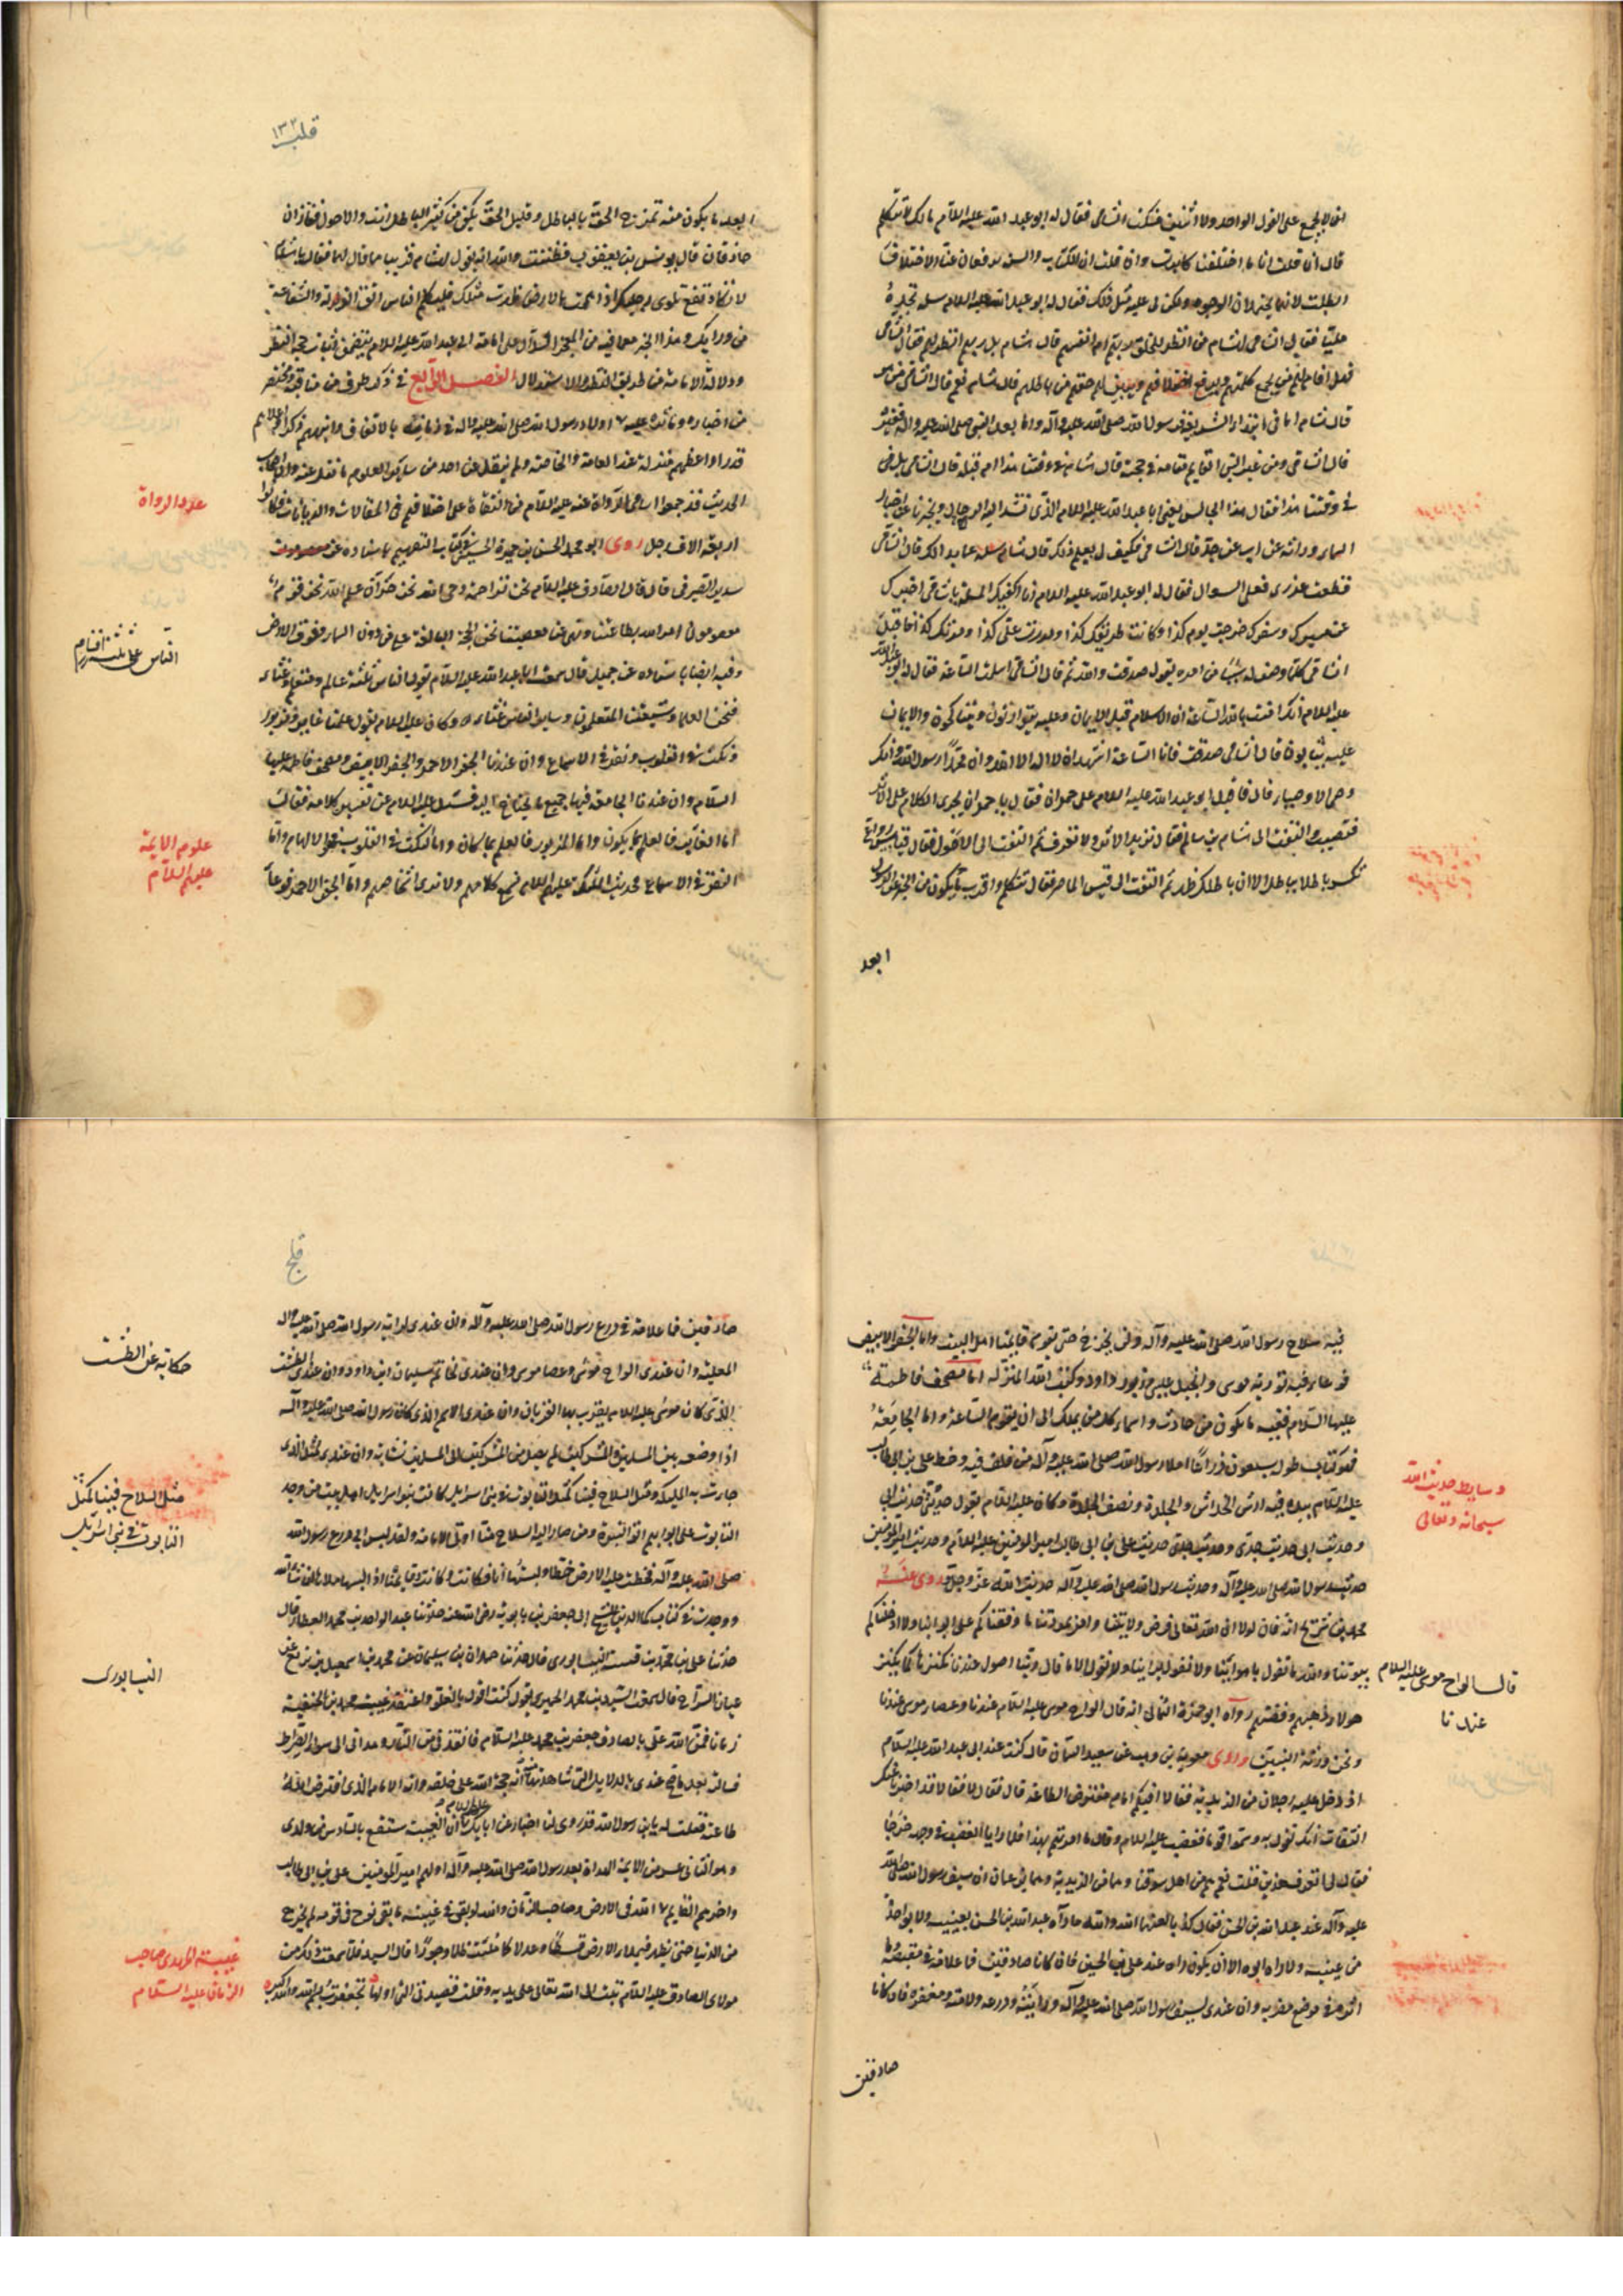 اتفاقا لا يجمع على القول الواحد ولا اثنين فسكت الشامي فقال له ابو عبد الله عليه السلام مالك لا تتكلم
قال ان قلت انا ما اختلفنا كابرت وان قلت ان الكتاب والسنة يرفعان عنا الاختلاف
ابطلت لانهما يحتملان الوجوه ولكن لي عليه مثل ذلك فقال له ابو عبد الله عليه السلام سله تجده
مليا فقال الشامي لهشام من انظر للخلق ربهم ام انفسهم قال هشام بل ربهم انظر لهم فقال الشامي
فهل اقام لهم من يجمع كلمتهم ويرفع اختلافهم ويبين لهم حقهم من باطلهم قال هشام نعم قال الشامي من هو
قال هشام اما في ابتداء الشريعة فرسول الله صلى الله عليه وآله واما بعد النبي صلى الله عليه وآله فغيره
قال الشامي ومن غير النبي القايم مقامه في حجته قال هشام في وقتنا هذا ام قبله قال الشامي بل في
وقتنا هذا فقال هذا الجالس يعني ابا عبد الله عليه السلام الذي تشد اليه الرحال ويخبرنا عن اخبار
السماء وراثة عن اب عن جد قال الشامي فكيف لي بعلم ذلك قال هشام سله عما بدا لك قال الشامي
قطعت عذري فعلي السوال فقال له ابو عبد الله عليه السلام انا اكفيك المسئلة يا شامي اخبرك
عن مسيرك وسفرك خرجت يوم كذا وكانت طريقك كذا ومررت على كذا ومر بك كذا فاقبل
الشامي كلما وصف له شيئا من امره يقول صدقت والله ثم قال الشامي اسلمت الساعة فقال له ابو عبد الله
عليه السلام انك امنت بالله الساعة ان الاسلام قبل الايمان وعليه يتوارثون ويتناكحون والايمان
عليه يثابون قال الشامي صدقت فانا الساعة اشهد ان لا اله الا الله وان محمدا رسول الله وانك
وصي الاوصياء قال فاقبل ابو عبد الله عليه السلام على حمران فقال يا حمران تجري الكلام على الاثر
فتصيب والتفت الى هشام بن سالم فقال تريد الاثر ولا تعرف ثم التفت الى الاحول فقال قياس رواغ
تكسر باطلا بباطل الا ان باطلك اظهر ثم التفت الى قيس الماصر فقال تتكلم واقرب ما يكون من الخبر عن الرسول
ابعد
قلب ١٣٢
ابعد ما يكون منه تمزج الحق بالباطل وقليل الحق يكفي من كثير الباطل انت والاحول قفازان
حاذقان قال يونس بن يعقوب فظننت والله انه يقول لهشام قريبا مما قال لهما فقال يا هشام
لا تكاد تقع تلوي رجليك اذا هممت بالارض طرت مثلك فليكلم الناس اتق الزلة والشفاعة
من ورايك وهذا الخبر مع ما فيه من المعجز الدال على امامة ابي عبد الله عليه السلام يتضمن اثبات حجة النظر
ودلالة الامامة من طريق النظر والاستدلال الفصل الرابع في ذكر طرف من مناقبه ومختصر
من اخباره
قدرا واعظمهم منزلة عند العامة والخاصة ولم ينقل عن احد من ساير العلوم ما نقل عنه وان اصحاب
الحديث قد جمعوا اسامي الرواة عنه عليه السلام من الثقاة على اختلافهم في المقالات والديانات فكانوا
اربعة الاف رجل روى ابو محمد الحسن بن حمزة الحسيني في كتاب التفهيم باسناده عن
سدير الصيرفي قال قال الصادق عليه السلام نحن تراجمة وحي الله نحن خزان علم الله نحن قوم
معصومون امر الله بطاعتنا ونهى عن معصيتنا نحن الحجة البالغة على من دون السماء وفوق الارض
وفيه ايضا باسناده عن جميل قال سمعت ابا عبد الله عليه السلام يقول الناس ثلثة عالم ومتعلم وغثاء
فنحن العلماء وشيعتنا المتعلمون وساير الناس غثاء وكان عليه السلام يقول علمنا غابر ومزبور
ونكت في القلوب ونقر في الاسماع وان عندنا الجفر الاحمر والجفر الابيض ومصحف فاطمة عليها
السلام وان عندنا الجامعة فيها جميع ما يحتاج اليه فسئل عليه السلام عن تفسير كلامه فقال
اما الغابر فالعلم بما يكون واما المزبور فالعلم بما كان واما النكت في القلوب فهو الالهام واما
النقر في الاسماع فحديث الملئكة عليهم السلام نسمع كلامهم ولا نرى اشخاصهم واما الجفر الاحمر فوعاء
عدد الرواة
الناس على ثلثة اقسام
علوم الايمة
عليهم السلام
فيه سلاح رسول الله صلى الله عليه وآله ولن يخرج حتى يقوم قايمنا اهل البيت واما الجفر الابيض
فوعاء فيه تورية موسى وانجيل عيسى وزبور داود وكتب الله المنزلة اما مصحف فاطمة
عليها السلام ففيه ما يكون من حادث واسماء كل من يملك الى ان تقوم الساعة واما الجامعة
فهو كتاب طوله سبعون ذراعا املاء رسول الله صلى الله عليه وآله من فلق فيه وخط علي بن ابي طالب
عليه السلام بيده فيه ارش الخدش والجلدة ونصف الجلدة وكان عليه السلام يقول حديثي حديث ابي
وحديث ابي حديث جدي وحديث جدي حديث علي بن ابي طالب امير المومنين عليه السلام وحديث امير المومنين
حديث رسول الله صلى الله عليه وآله وحديث رسول الله صلى الله عليه وآله حديث الله عز وجل وروى عنه
محمد بن شريح انه قال لولا ان الله تعالى فرض ولايتنا وامر بمودتنا ما وقفناكم على ابوابنا ولا ادخلناكم
بيوتنا والله ما نقول باهوائنا ولا نقول براينا ولا نقول الا ما قال ربنا اصول عندنا نكنزها كما يكنز
هولاء ذهبهم وفضتهم رواه ابو حمزة الثمالي انه قال الواح موسى عليه السلام عندنا وعصا موسى عندنا
ونحن ورثة النبيين وروى معوية بن وهب عن سعيد السمان قال كنت عند ابي عبد الله عليه السلام
اذ دخل عليه رجلان من الزيدية فقالا افيكم امام مفترض الطاعة قال فقال لا فقالا قد اخبرنا عنك
الثقات انك تقول به وسموا قوما فغضب عليه السلام وقال ما امرتهم بهذا فلما رايا الغضب في وجهه خرجا
فقال لي اتعرف هذين قلت نعم هم من اهل سوقنا وهما من الزيدية وهما يزعمان ان سيف رسول الله صلى الله
عليه وآله عند عبد الله بن الحسن فقال كذبا لعنهما الله والله ما رآه عبد الله بن الحسن بعينيه ولا بواحدة
من عينيه ولا رآه ابوه الا ان يكون رآه عند علي بن الحسين فان كانا صادقين فما علامة في مقبضه وما
اثر في موضع مضربه وان عندي لسيف رسول الله صلى الله عليه وآله ودرعه ولامته ومغفره فان كانا
صادقين
وسايط حديث الله
سبحانه وتعالى
قال الواح موسى عليه السلام
عندنا
قلج
صادقين فما علامة في درع رسول الله صلى الله عليه وآله وان عندي لراية رسول الله صلى الله عليه وآله
المغلبة وان عندي الواح موسى وعصا موسى وان عندي لخاتم سليمان بن داود وان عندي الطشت
الذي كان موسى عليه السلام يقرب بها القربان وان عندي الاسم الذي كان رسول الله صلى الله عليه وآله
اذا وضعه بين المسلمين والمشركين لم يصل من المشركين الى المسلمين نشابة وان عندي لمثل الذي
جاءت به المليكة ومثل السلاح فينا كمثل التابوت في بني اسرائيل كانت بنو اسرائيل اهل بيت وجد
التابوت على ابوابهم اوتوا النبوة ومن صار اليه السلاح منا اوتي الامامة ولقد لبس ابي درع رسول الله
صلى الله عليه وآله فخطت عليه الارض خطيطا ولبستها انا فكانت وكانت وقايمنا اذا لبسها ملأها انشاء الله
ووجدت في كتاب كمال الدين للشيخ ابي جعفر بن بابويه رضي الله عنه حدثنا عبد الواحد بن محمد العطار قال
حدثنا علي بن محمد بن قتيبة النيسابوري قال حدثنا حمدان بن سليمان عن محمد بن اسمعيل بن بزيع عن
حيان السراج قال سمعت السيد بن محمد الحميري يقول كنت اقول بالغلو واعتقد غيبة محمد بن الحنفية
زمانا فمن الله علي بالصادق جعفر بن محمد عليه السلام فانقذني من النار وهداني الى سواء الصراط
فسالته بعد ما صح عندي بالدلايل التي شاهدتها منه انه حجة الله على خلقه وانه الامام الذي افترض الله
طاعته فقلت له يا بن رسول الله قد روي لنا اخبار عن آبائك عليهم السلام ان الغيبة ستقع بالسادس من ولدي
وهو الثاني عشر من الايمة الهداة بعد رسول الله صلى الله عليه وآله اولهم امير المومنين علي بن ابي طالب
واخرهم القايم بقية الله في الارض وصاحب الزمان والله لو بقي في غيبته ما بقي نوح في قومه لم يخرج
من الدنيا حتى يظهر فيملأ الارض قسطا وعدلا كما ملئت ظلما وجورا قال السيد فلما سمعت ذلك من
مولاي الصادق عليه السلام تبت الى الله تعالى على يديه وقلت قصيدتي التي اولها تجعفرت بسم الله والله اكبر
حكاية عن الطشت
مثل السلاح فينا كمثل
التابوت في بني اسرائيل
النيسابوري
غيبة المهدي صاحب
الزمان عليه السلام